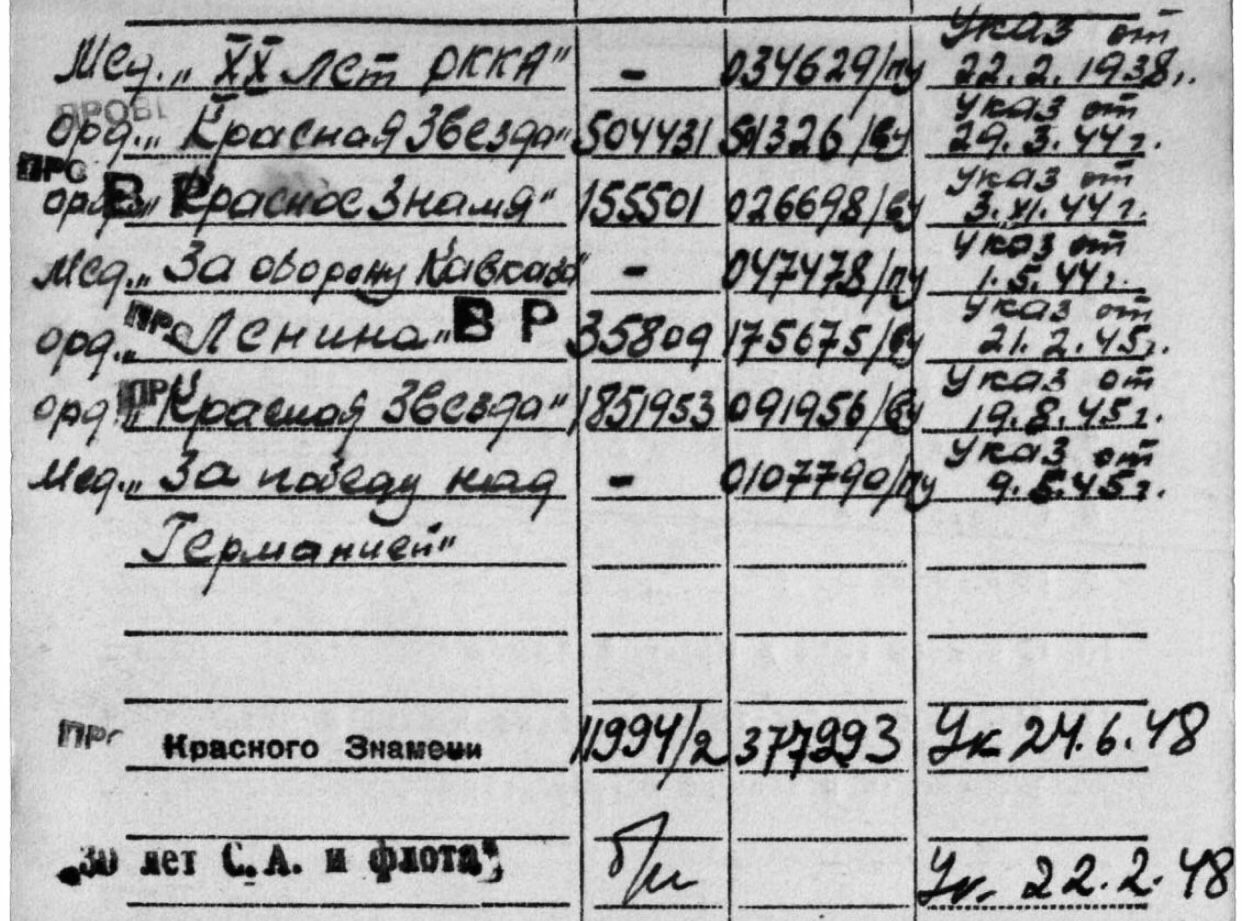 Мед. „XX лет РККА" - 034629/пу Указ от 22.2.1938г.
орд. „Красная Звезда" 504431 501326/ву Указ от 29.3.44г.
орд. „Красное Знамя" 155501 026698/ву Указ от 3.XI.44г.
Мед. „За оборону Кавказа" - 047478/пу Указ от 1.5.44г.
орд. „Ленина" В Р 35809 175675/ву Указ от 21.2.45г.
орд. „Красная Звезда" 1851953 091956/ву Указ от 19.8.45г.
Мед. „За победу над - 0107790/пу Указ от 9.5.45г.
Германией"
Красного Знамени 11994/2 377993 Ук 24.6.48
„30 лет С.А. и флота" б/н Ук. 22.2.48